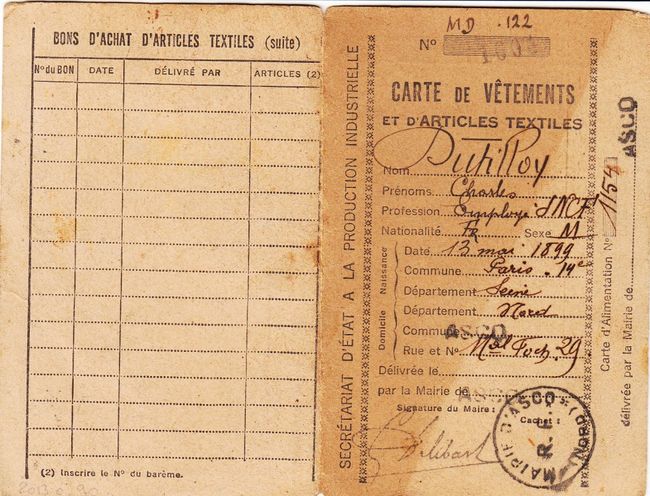 BONS D'ACHAT D'ARTICLES TEXTILES (suite)
N° du BON DATE DÉLIVRÉ PAR ARTICLES (2)
(2) Inscrire le N° du barème.
SECRÉTARIAT D'ÉTAT A LA PRODUCTION INDUSTRIELLE
MD. 122
N°
CARTE DE VÊTEMENTS
ET D'ARTICLES TEXTILES
Nom Dutilloy
Prénoms Charles
Profession Employé SNCF
Nationalité FR Sexe M
Naissance
Date 13 mai 1899
Commune Paris. 14e
Département Seine
Domicile
Département Nord
Commune ASCQ
Rue et N° Mal Foch. 29.
Délivrée le
par la Mairie de ASCQ
Signature du Maire :
Cachet :
MAIRIE D'ASCQ (NORD)
R.F.
Carte d'Alimentation N° 1154
délivrée par la Mairie de ASCQ